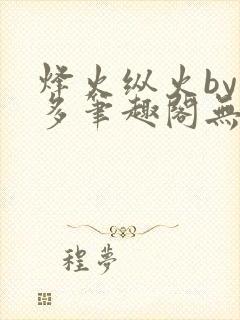 烽火纵火by
多筆趣閣無
程夢